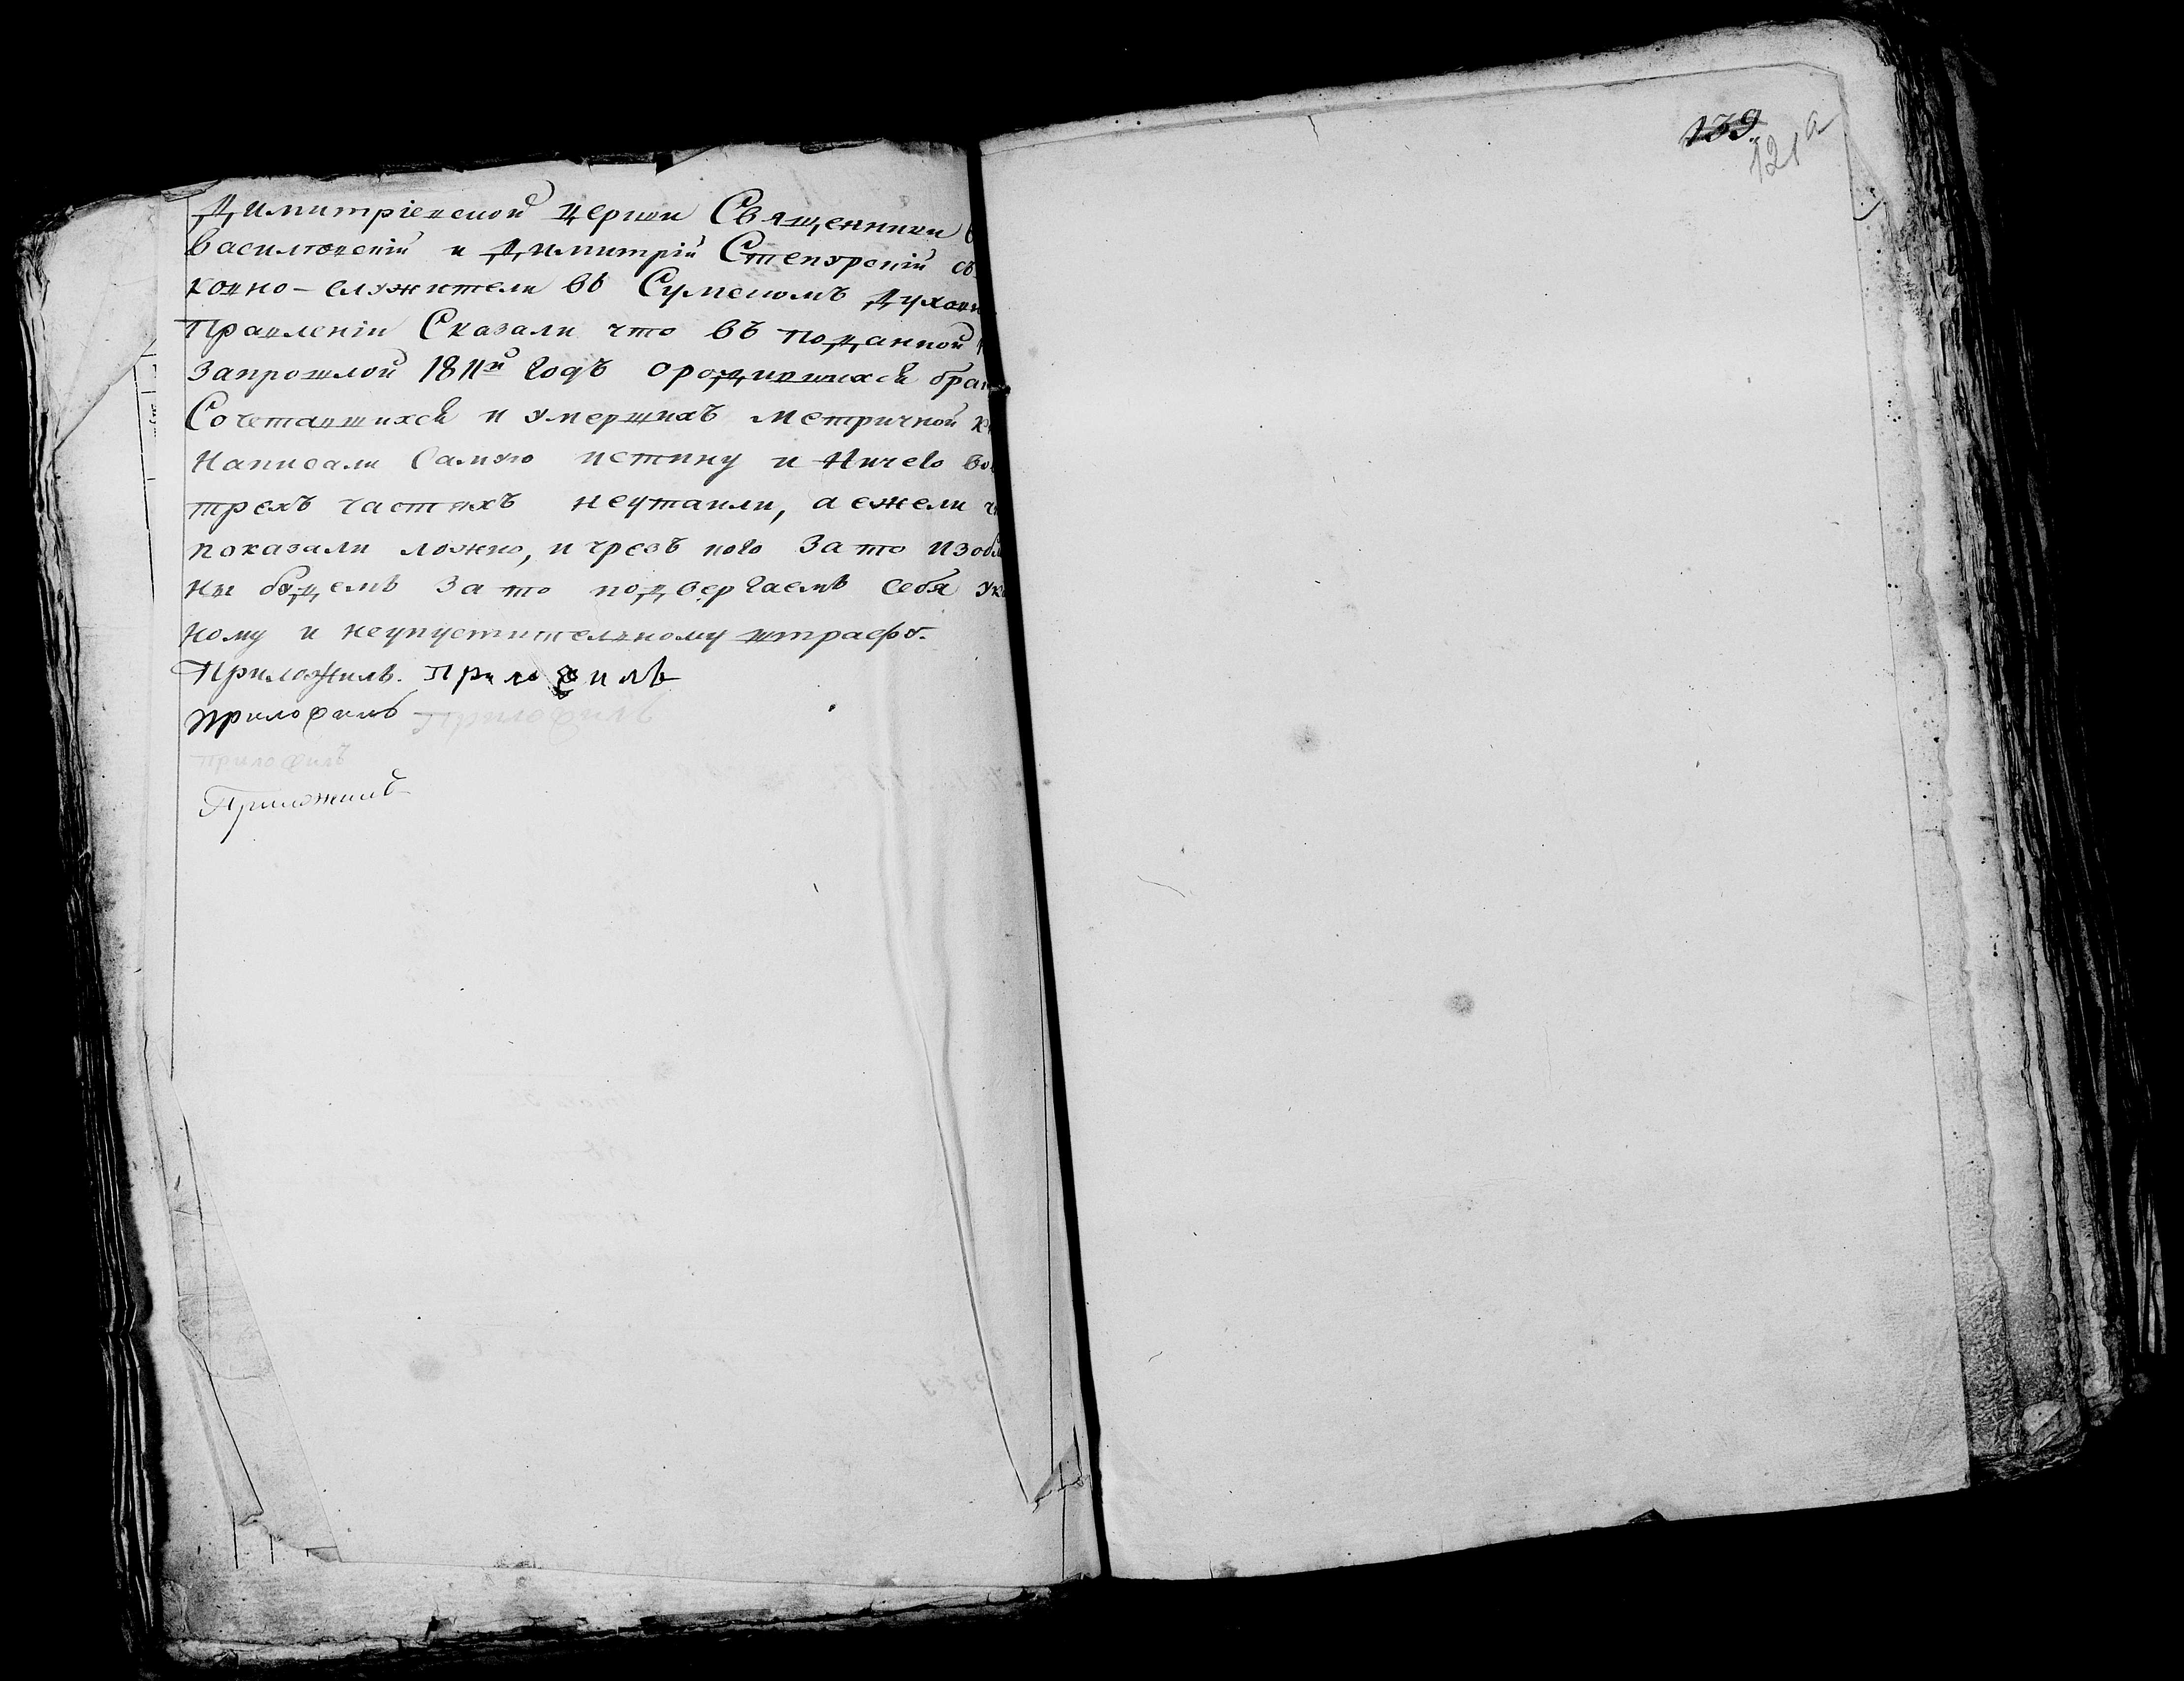 Димитріевской церкви Священники
Василковскій и Димитрій Степурскій съ
ковно-служители въ Сумскомъ Духовн
Правленіи Сказали что въ поданной
запрошлой 1811й годъ ородившихся брако
Сочетавшихся и умершихъ метричной кн
написали Самую истину и Ничего во
трехъ частяхъ неутаили, а ежели ч
показали ложно, и чрезъ кого Зато изобл
ны будемъ Зато подвергаемъ себя ука
ному и неупустителному штрафу.
Приложилъ. приложилъ
приложилъ Приложилъ
приложилъ
Приложилъ
139
121а